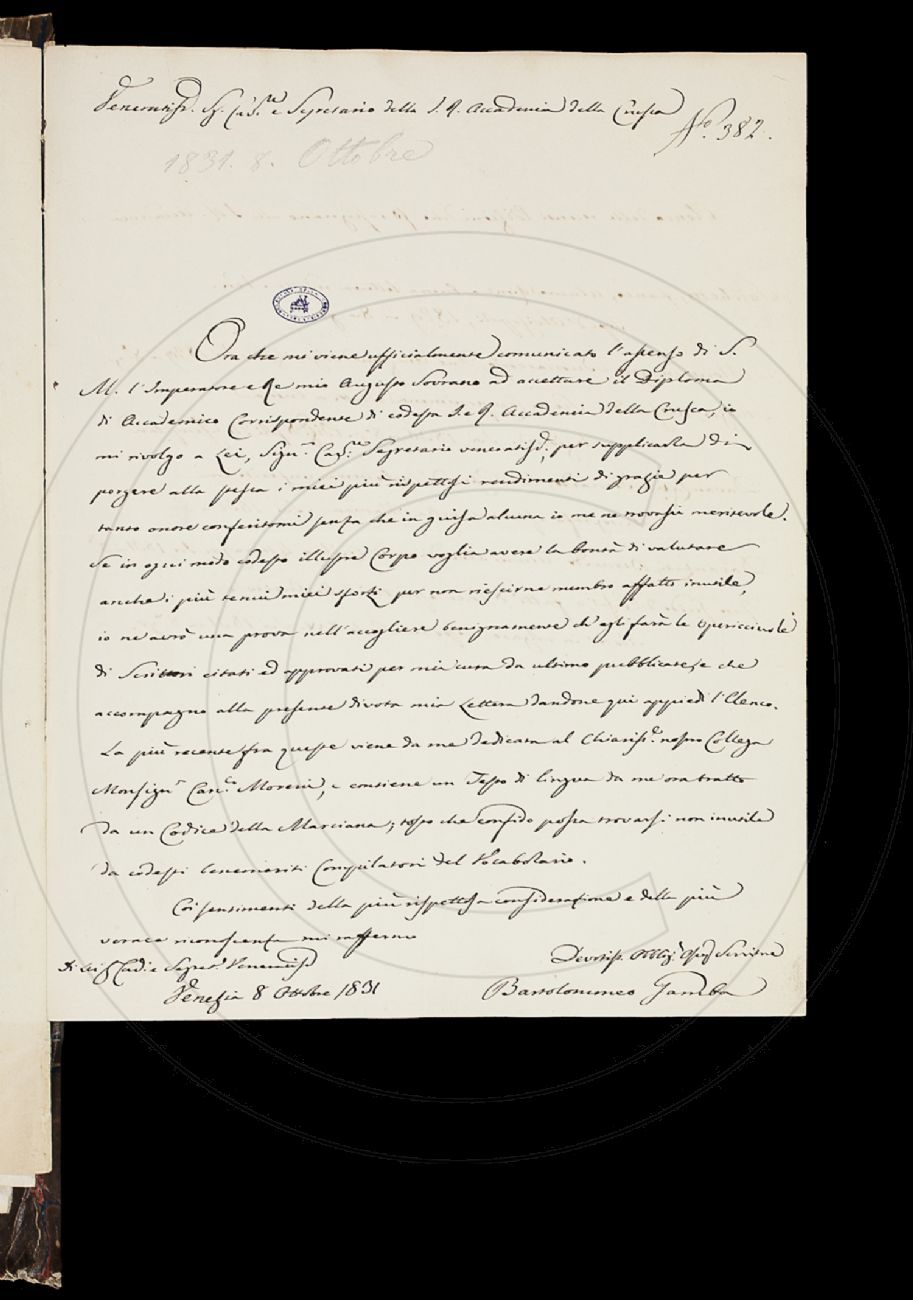 Veneratiss.º Sig.r Cav.re e Segretario della I. R. Accademia della Crusca
Nº. 382.
1831. 8. Ottobre
Ora che mi viene ufficialmente comunicato l'assenso di S.
M. l'Imperatore e Re mio Augusto Sovrano ad accettare il Diploma
di Accademico Corrispondente di codesta I. e R. Accademia della Crusca, io
mi rivolgo a Lei, Sign.r Cav.re Segretario veneratiss.º, per supplicarla di
porgere alla stessa i miei più rispettosi rendimenti di grazie per
tanto onore conferitomi senza che in guisa alcuna io me ne trovassi meritevole.
Se in ogni modo codesto illustre Corpo voglia avere la bontà di valutare
anche i più tenui miei sforzi per non riescirne membro affatto inutile,
io ne avrò una prova nell'accogliere benignamente ch'egli farà le opericciuole
di Scrittori citati ed approvati per mia cura da ultimo pubblicate, e che
accompagno alla presente divota mia Lettera dandone qui appiedi l'Elenco.
La più recente fra queste viene da me dedicata al Chiariss.º nostro Collega
Monsign.r Can.co Moreni, e contiene un Testo di lingua da me ora tratto
da un Codice della Marciana; testo che confido possa trovarsi non inutile
da codesti benemeriti Compilatori del Vocabolario.
Coi sentimenti della più rispettosa considerazione e della più
verace riconoscenza mi raffermo
Di Lei Sig. Cav. e Segret. Veneratiss.º
Devotiss. Obblig.º Servitore
Venezia 8 Ottobre 1831
Bartolommeo Gamba